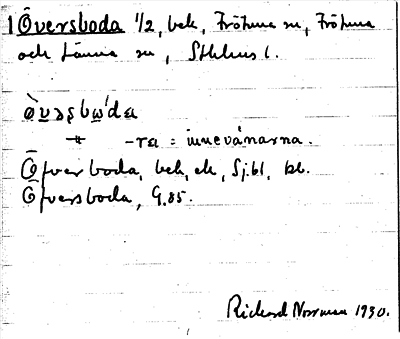 1 Översboda 1/2, bek, Frötuna sn, Frötuna
och Länna sn, Sthlms l.
-ra = innevånarna.
Öfverboda, bek, ek, Sj.bl, bl.
Öfversboda, G.85.
Rickard Norrman 1930.